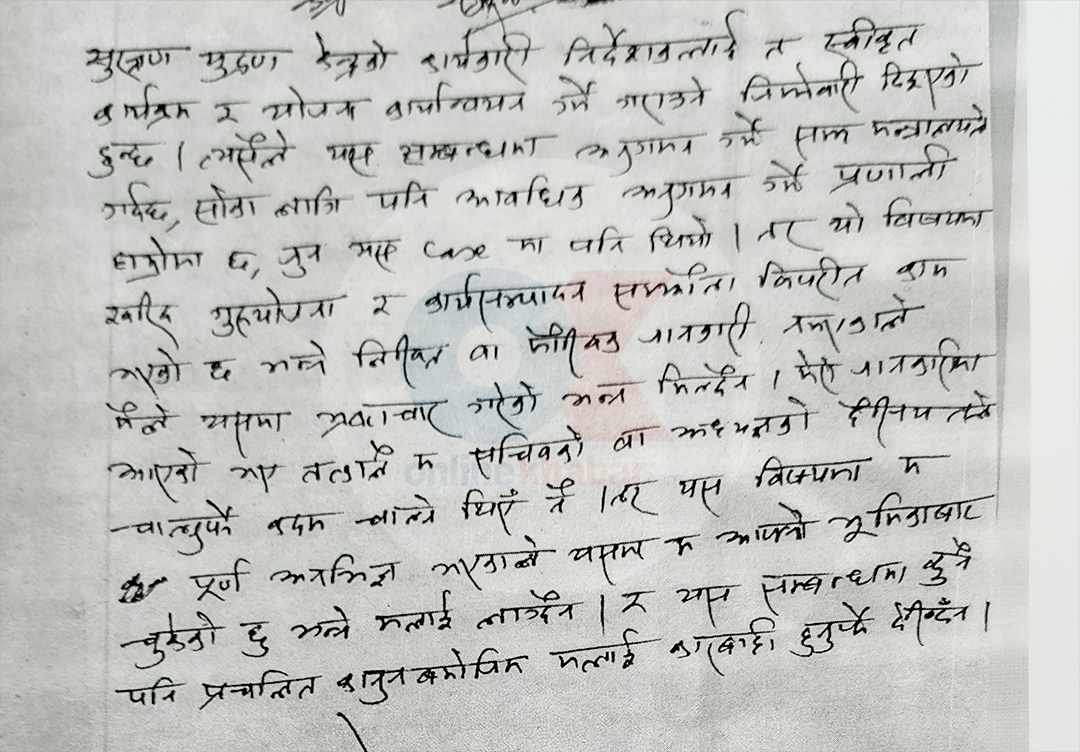 सुरक्षण मुद्रण केन्द्रको कार्यकारी निर्देशकलाई त स्वीकृत
कार्यक्रम र योजना कार्यान्वयन गर्ने गराउने जिम्मेवारी दिइएको
हुन्छ । त्यसैले यस सम्बन्धमा अनुगमन गर्ने काम मन्त्रालयले
गर्दछ, सोका लागि पनि आवधिक अनुगमन गर्ने प्रणाली
हाम्रोमा छ, जुन यस case मा पनि थियो । तर यो विषयमा
खरिद गुरुयोजना र कार्यसम्पादन सम्झौता विपरीत काम
भएको छ भन्ने लिखित वा मौखिक जानकारी नभएकाले
मैले यसमा भ्रष्टाचार गरेको भन्न मिल्दैन । मेरो जानकारीमा
आएको भए तत्कालै म सचिवको वा अध्यक्षको हैसियतले
चाल्नुपर्ने कदम चाल्ने थिएँ नै । तर यस विषयमा म
पूर्ण अनभिज्ञ भएकाले यसमा म आफ्नो भूमिकाबाट
चुकेको छु भन्ने मलाई लाग्दैन । र यस सम्बन्धमा कुनै
पनि प्रचलित कानुन बमोजिम मलाई कारबाही हुनुपर्ने देखिँदैन ।
onlinekhabar